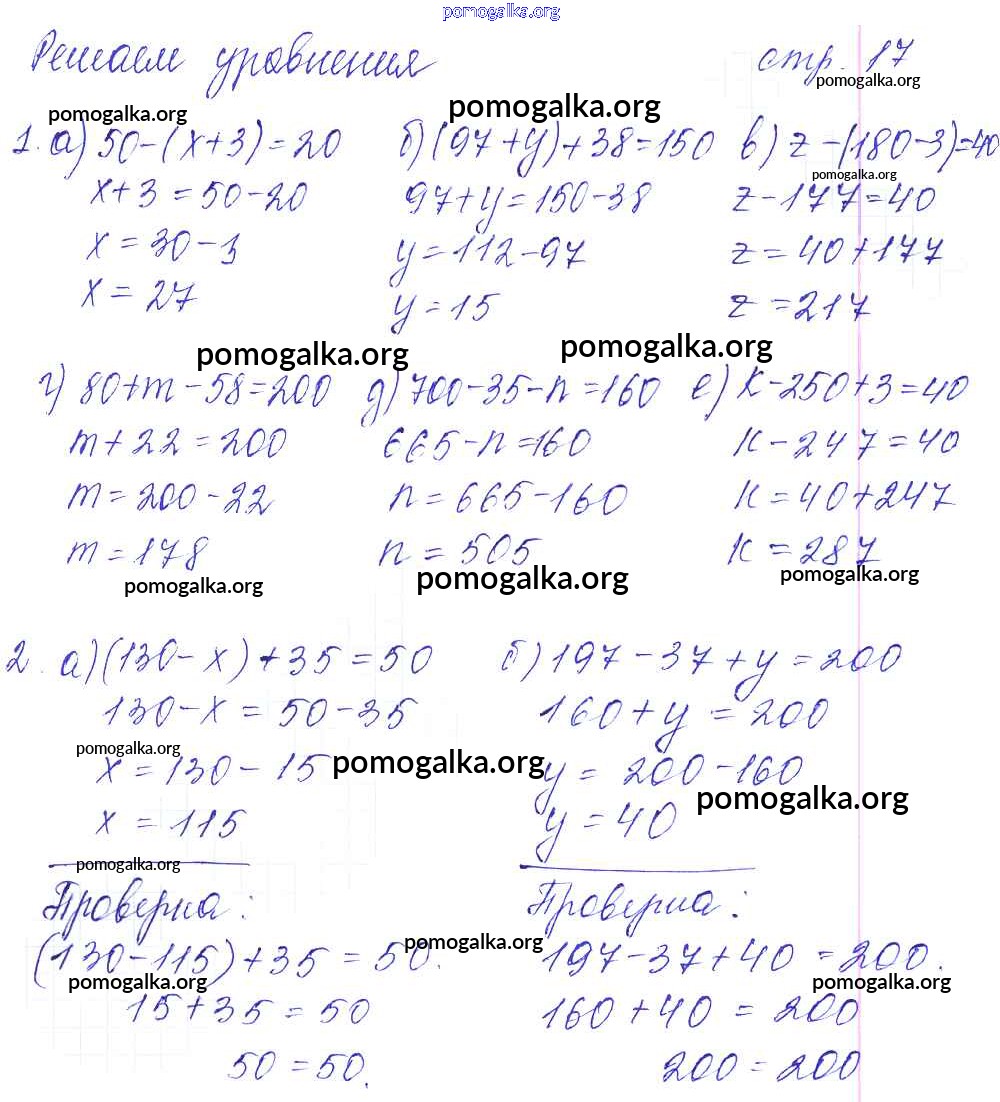 pomogalka.org
Решаем уровнения стр. 17
pomogalka.org
pomogalka.org pomogalka.org
1. а) 50-(x+3)=20 б) (97+y)+38=150 в) z-(180-3)=40
pomogalka.org
x+3=50-20 97+y=150-38 z-177=40
x=30-3 y=112-97 z=40+177
x=27 y=15 z=217
pomogalka.org pomogalka.org
г) 80+m-58=200 д) 700-35-n=160 е) к-250+3=40
m+22=200 665-n=160 к-247=40
m=200-22 n=665-160 к=40+247
m=178 n=505 к=287
pomogalka.org pomogalka.org pomogalka.org
2. а) (130-x)+35=50 б) 197-37+y=200
130-x=50-35 160+y=200
pomogalka.org
x=130-15 pomogalka.org y=200-160
pomogalka.org
x=115 y=40
pomogalka.org
Проверка: Проверка:
pomogalka.org
(130-115)+35=50. 197-37+40=200.
pomogalka.org pomogalka.org
15+35=50 160+40=200
50=50. 200=200